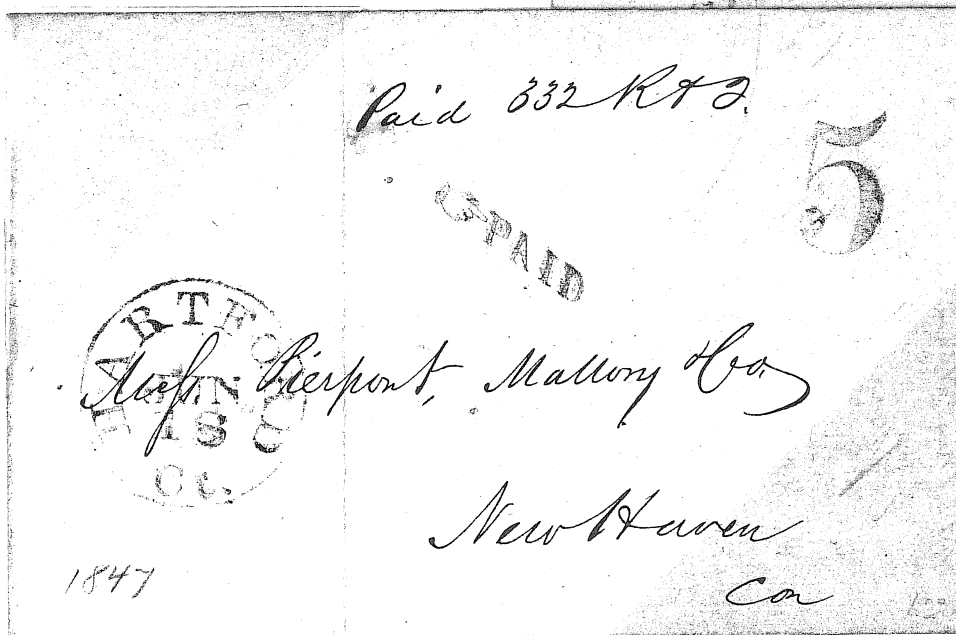 Paid 332 R & J.
5
PAID
HARTFORD
JUN
18
Ct.
Mess. Pierpont, Mallory & Co.
New Haven
Con
1847